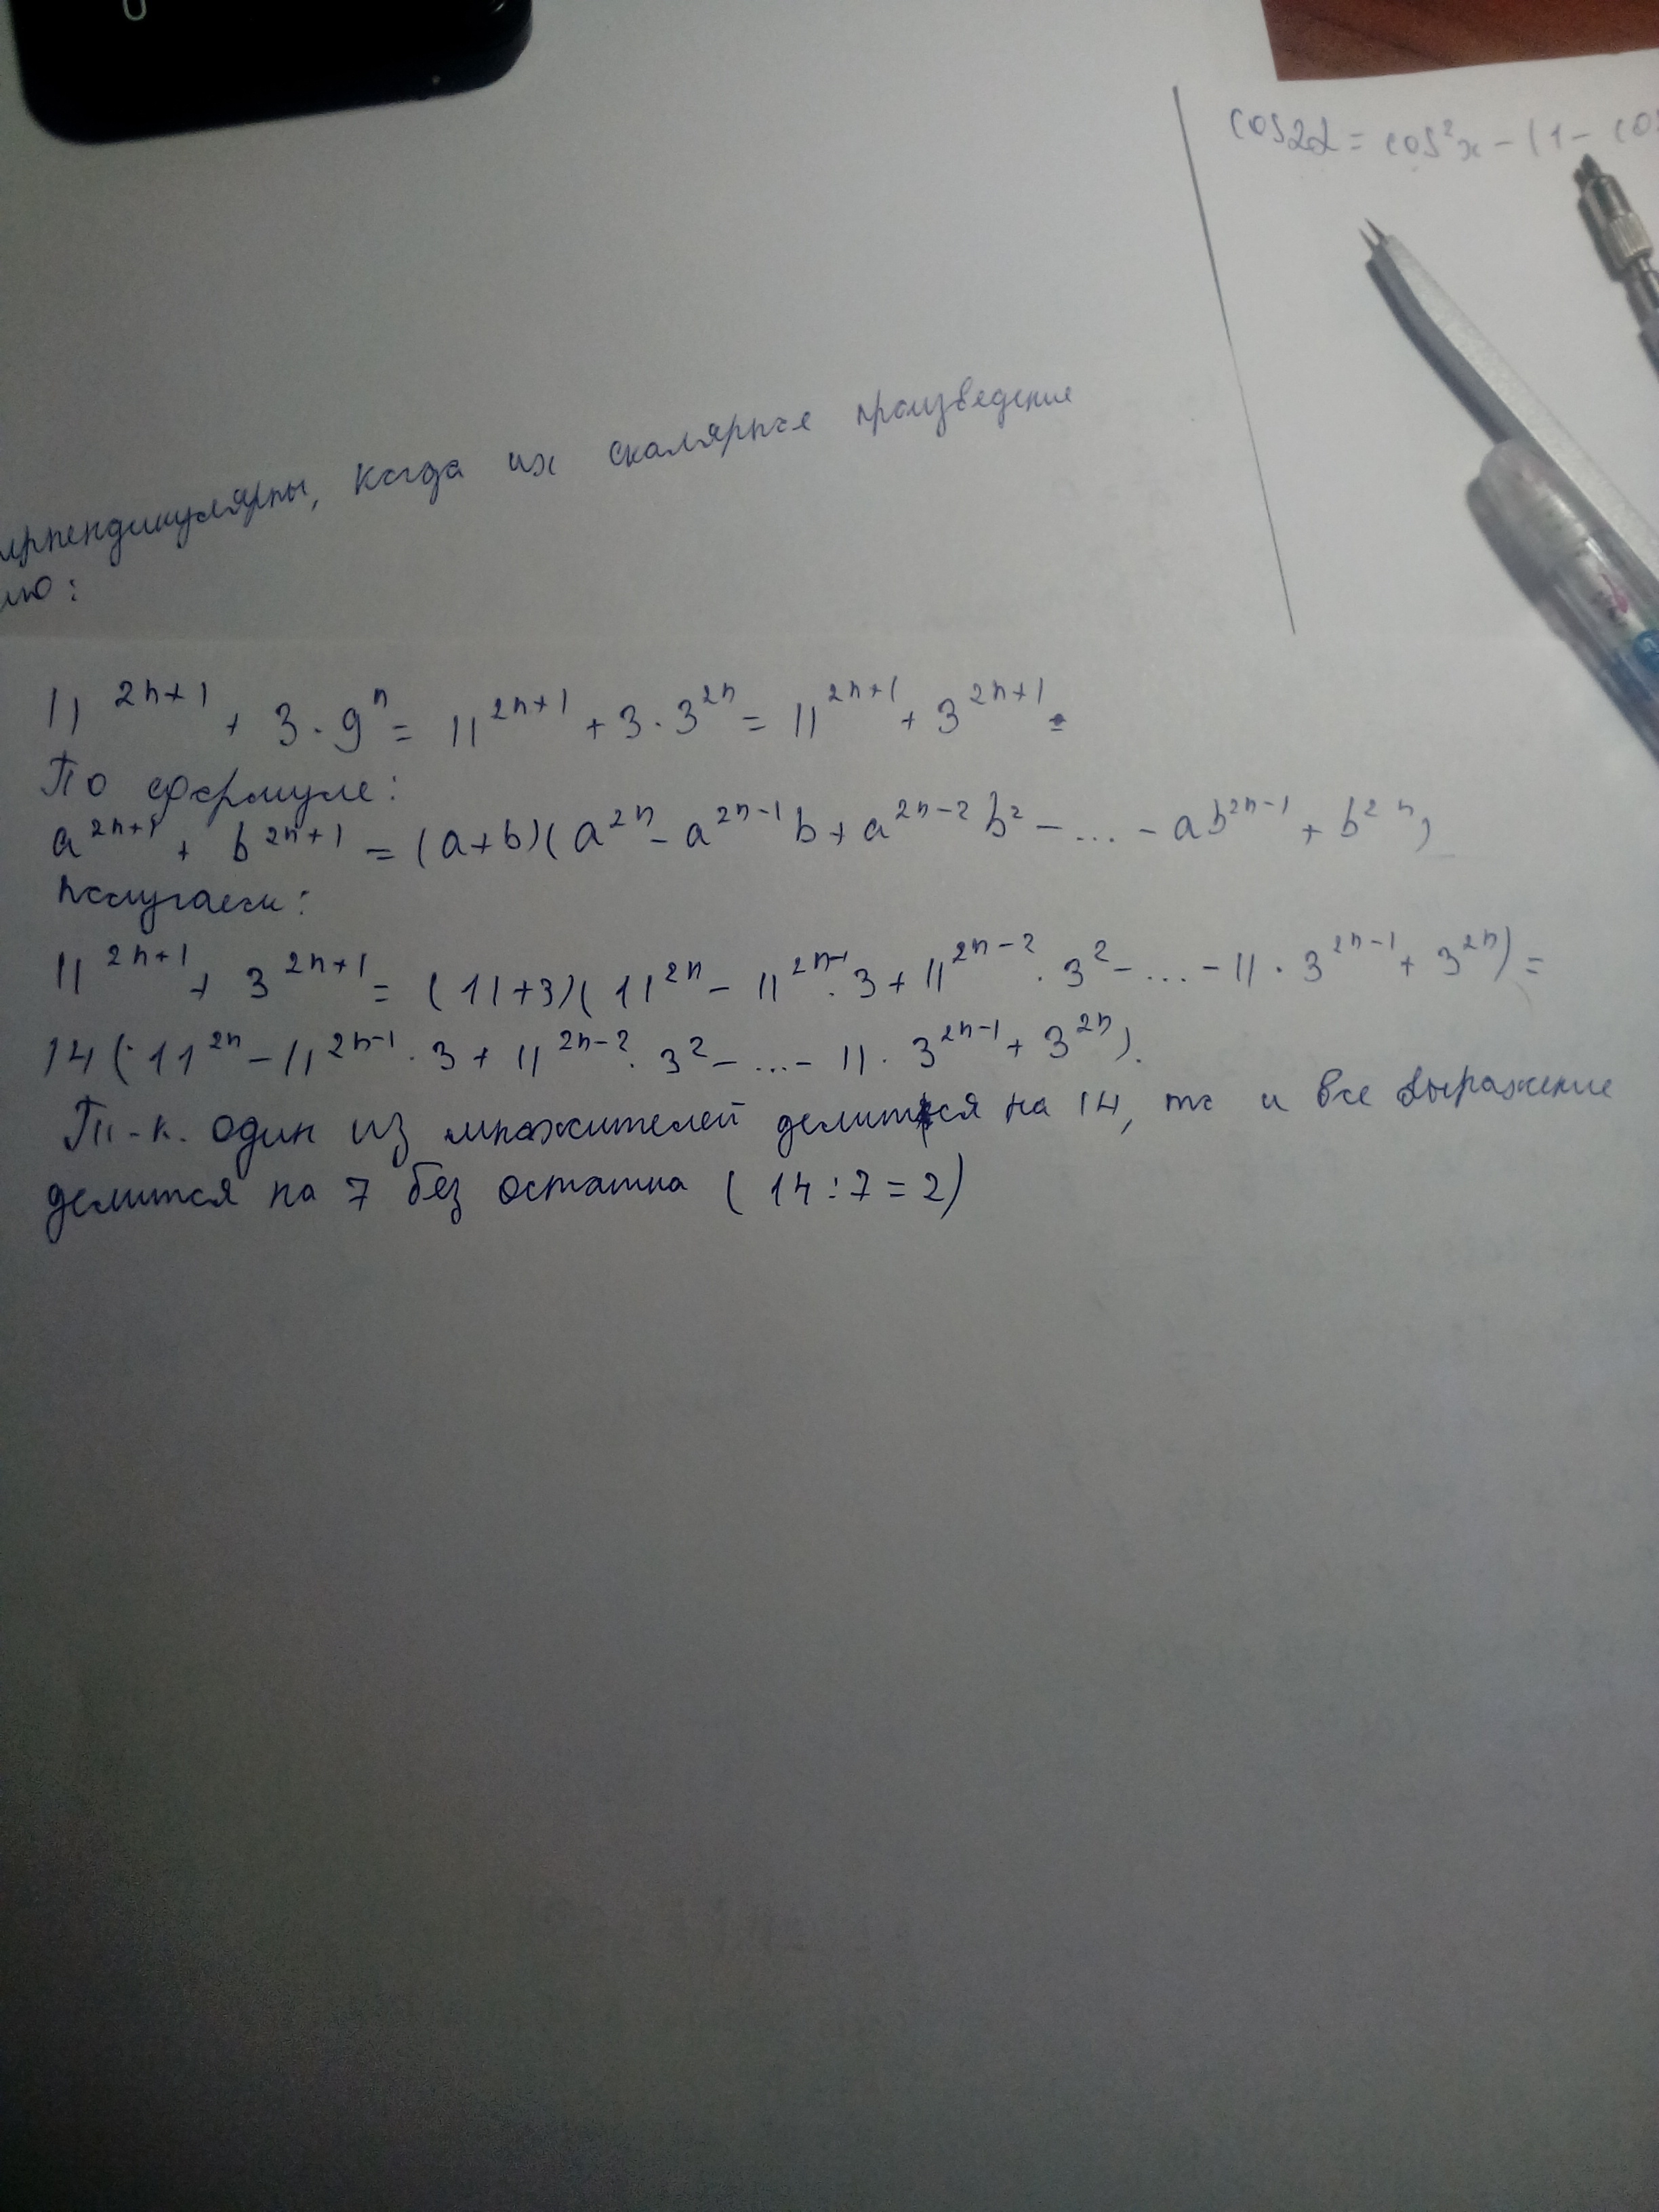 cos2α = cos²x - (1 - cos
ерпендикулярны, когда их скалярное произведение
лю:
11^{2n+1} + 3·9^n = 11^{2n+1} + 3·3^{2n} = 11^{2n+1} + 3^{2n+1} =
По формуле:
a^{2n+1} + b^{2n+1} = (a+b)(a^{2n} - a^{2n-1}b + a^{2n-2}b² - ... - ab^{2n-1} + b^{2n})
Получаем:
11^{2n+1} + 3^{2n+1} = (11+3)(11^{2n} - 11^{2n-1}·3 + 11^{2n-2}·3² - ... - 11·3^{2n-1} + 3^{2n}) =
14(11^{2n} - 11^{2n-1}·3 + 11^{2n-2}·3² - ... - 11·3^{2n-1} + 3^{2n}).
Т.-к. один из множителей делится на 14, то и все выражение
делится на 7 без остатка (14:7=2)